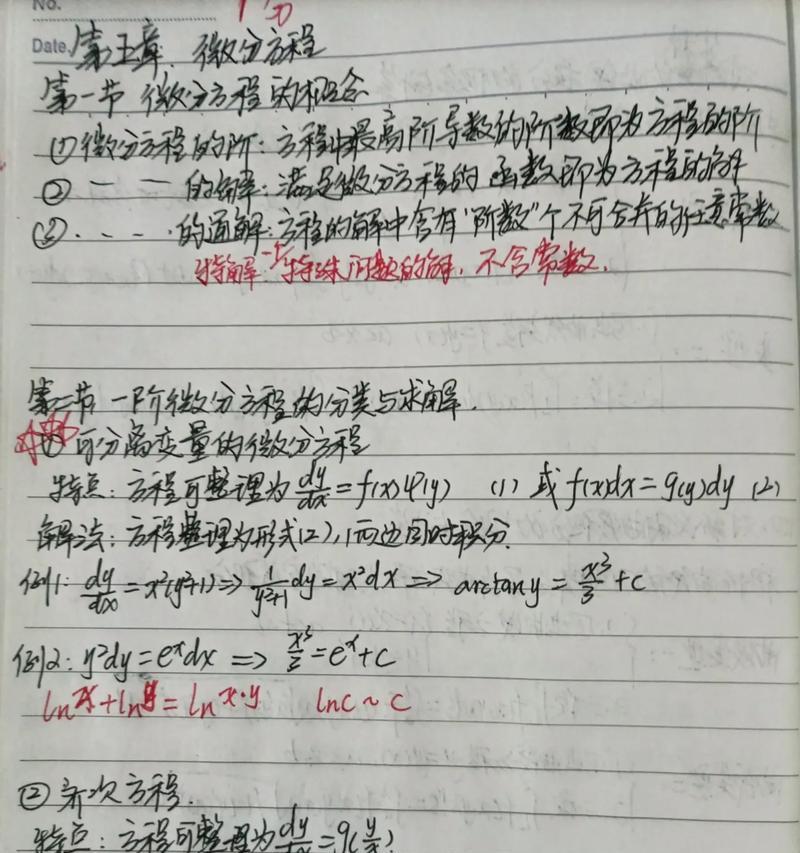 No.
Date.
第五章. 微分方程
第一节 微分方程的概念
①微分方程的阶: 方程中最高阶导数的阶数即为方程的阶
② 一 一 的解: 满足微分方程的函数即为方程的解
③ . . - . 的通解: 方程的解中含有"阶数"个不可合并的任意常数
特解: 一个特殊函数的解, 不含常数.
第二节 一阶微分方程的分类与求解.
① 可分离变量的微分方程
特点: 方程可整理为 dy/dx = f(x)φ(y) (1) 或 f(x)dx = g(y)dy (2)
解法: 方程整理为形式(2), 两边同时积分.
例1: dy/dx = x²(y²+1) ⇒ 1/(y²+1) dy = x²dx ⇒ arctany = x³/3 + c
例2: y²dy = eˣdx ⇒ x³/3 = eˣ + c
ln x + ln y = ln x·y lnc ~ c
② 齐次方程.
特点: 方程可整理为 dy/dx = g(y/x)